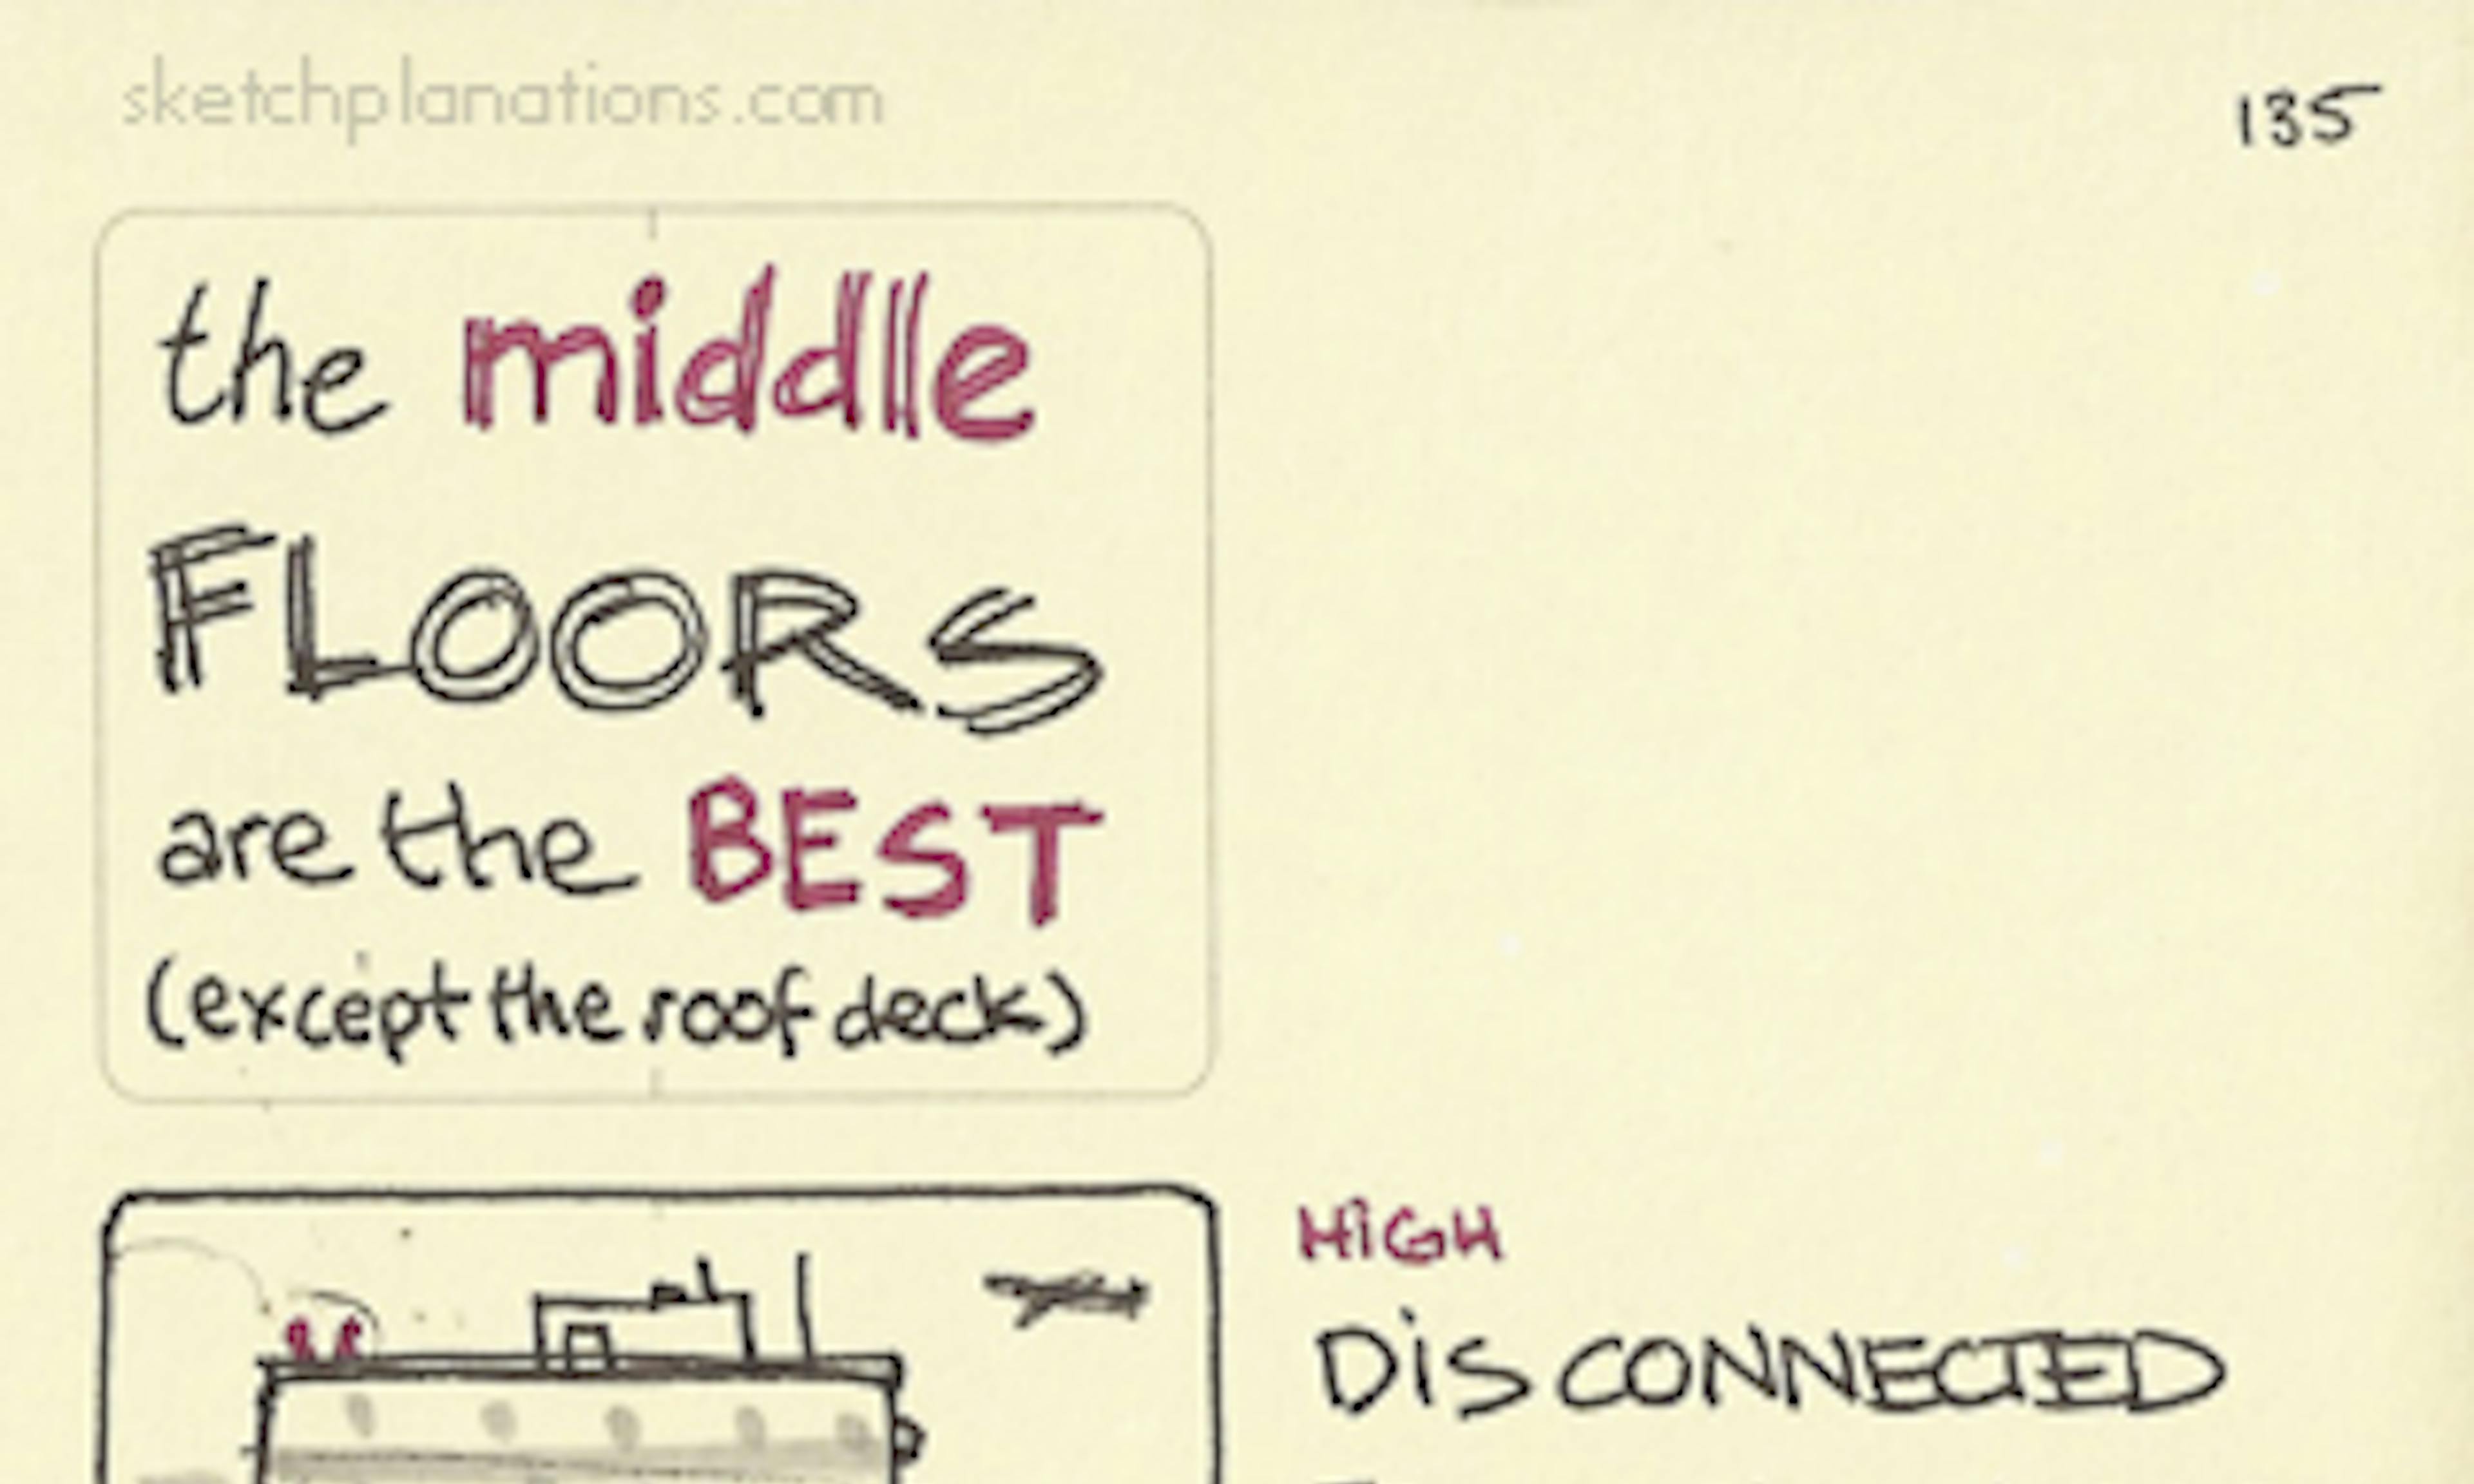 sketchplanations.com
135
the middle
FLOORS
are the BEST
(except the roof deck)
HiGH
DiSCONNECTED